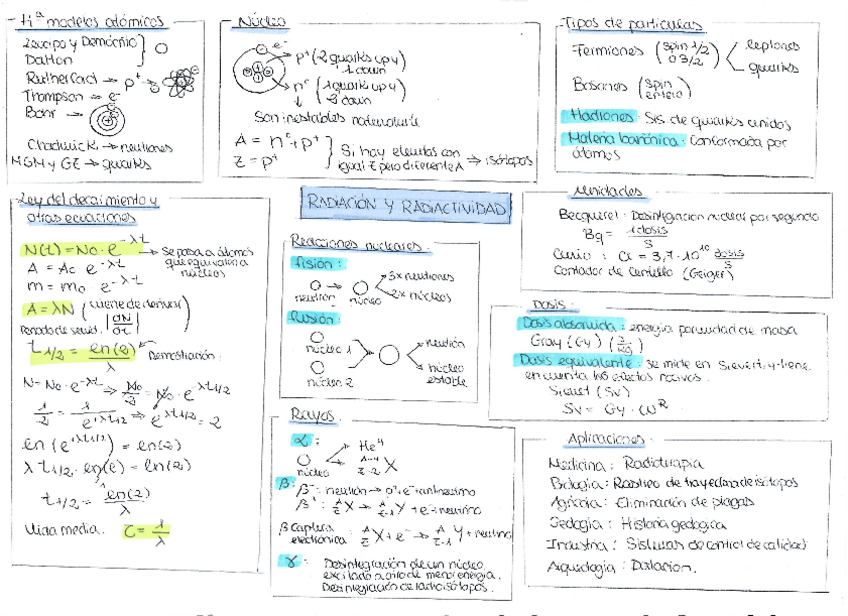 Hª modelos atómicos
Leucipo y Demócrito
Dalton
Rutherford → p+
Thompson → e-
Bohr →
Chadwick → neutrones
MGM y GZ → quarks
Núcleo
e-
p+ (2 quarks up y 1 down)
n° (1 quark up y 2 down)
Son inestables
A = n° + p+
Z = p+
Si hay elementos con igual Z pero diferente A ⇒ isótopos
Tipos de partículas
Fermiones (spin 1/2 ó 3/2) < leptones
quarks
Bosones (spin entero)
Hadrones: Sis. de quarks unidos
Materia bariónica: Conformada por átomos
Ley del decaimiento y
otras ecuaciones
N(t) = N₀ · e^-λt → Se pasa a átomos que equivalen a núcleos
A = A₀ e^-λt
m = m₀ e^-λt
A = λN (viene de derivar)
|dN/dt|
Periodo de semid.
t 1/2 = ln(2)/λ Demostración:
N = N₀ · e^-λt ⇒ N₀/2 = N₀ · e^-λt1/2
1/2 = 1/e^λt1/2 ⇒ e^λt1/2 = 2
ln(e^λt1/2) = ln(2)
λ t1/2 · ln(e) = ln(2)
t1/2 = ln(2)/λ
Vida media. τ = 1/λ
RADIACIÓN Y RADIACTIVIDAD
Reacciones nucleares.
Fisión:
neutrón → núcleo
3x neutrones
2x núcleos
Fusión:
núcleo 1
núcleo 2
neutrón
núcleo estable
Rayos
α:
núcleo
He⁴
A-4 Z-2 X
β:
β-: neutrón →
β+: A Z X → A Z-1 Y + e+ neutrino
β captura electrónica: A Z X + e- → A Z-1 Y + neutrino
γ: Desintegración de un núcleo
excitado a otro de menor energía.
Desintegración de radioisótopos.
Unidades
Becquerel: Desintegración nuclear por segundo
Bq = 1 dosis/s
Curio: Ci = 3,7 · 10^10 dosis/s
Contador de Centello (Geiger)
Dosis:
Dosis absorvida: energía por unidad de masa
Gray (Gy) (J/kg)
Dosis equivalente: Se mide en Sievert, y tiene
en cuenta los efectos nocivos.
Sievert (Sv)
Sv = Gy · W^R
Aplicaciones:
Medicina: Radioterapia
Biología: Rastreo de trayectoria de isótopos
Agrícola: Eliminación de plagas
Geología: Historia geológica
Industria: Sistemas de control de calidad
Arqueología: Datación.